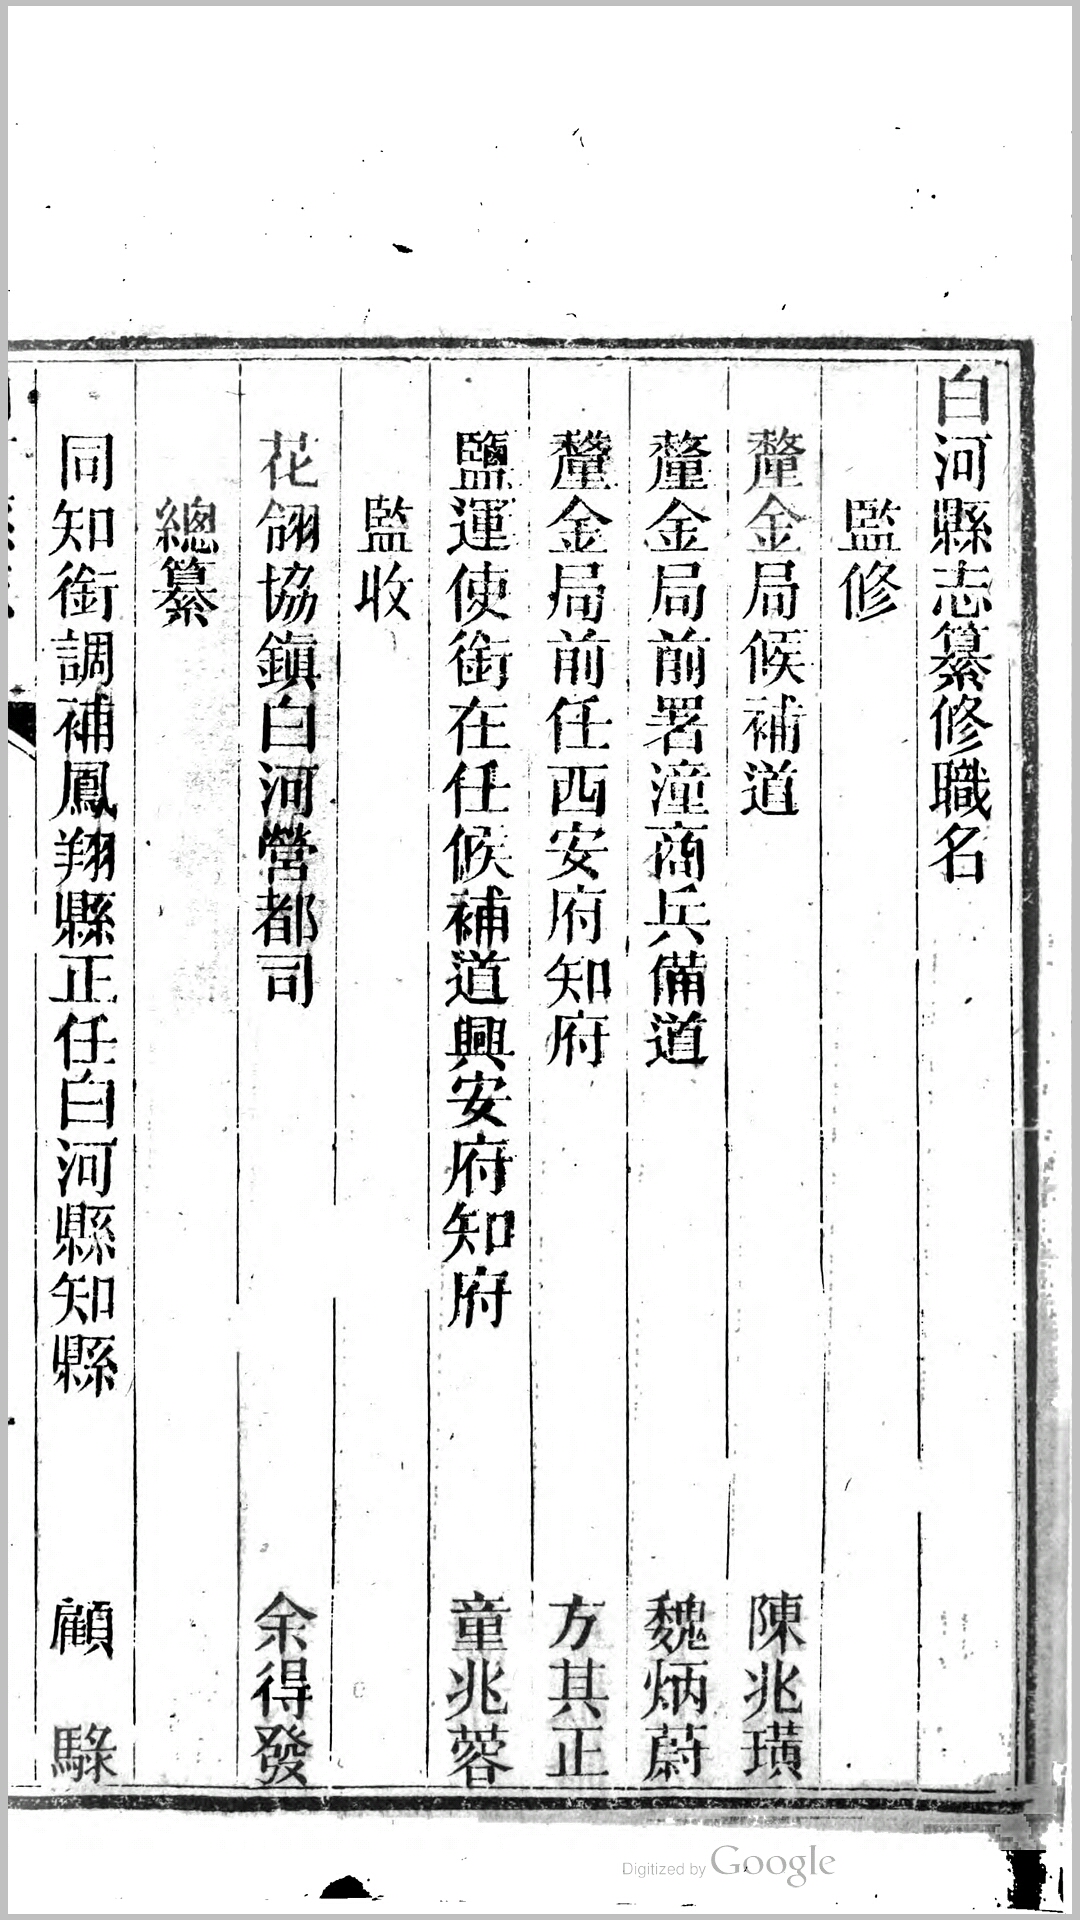 白河縣志纂修職名
監修
釐金局候補道　陳兆璜
釐金局前署潼商兵備道　魏炳蔚
釐金局前任西安府知府　方其正
鹽運使銜在任候補道興安府知府　童兆蓉
監收
花翎協鎮白河營都司　余得發
總纂
同知銜調補鳳翔縣正任白河縣知縣　顧　騄
Digitized by Google